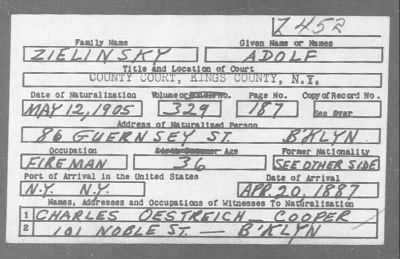 Z 452
Family Name Given Name or Names
ZIELINSKY ADOLF
Title and Location of Court
COUNTY COURT, KINGS COUNTY, N.Y.
Date of Naturalization Volume or Page No. Copy of Record No.
MAY 12, 1905 329 187 See Over
Address of Naturalized Person
86 GUERNSEY ST. B'KLYN
Occupation Age Former Nationality
FIREMAN 36 SEE OTHER SIDE
Port of Arrival in the United States Date of Arrival
N.Y. N.Y. APR. 20, 1887
Names, Addresses and Occupations of Witnesses To Naturalization
1 CHARLES OESTREICH — COOPER
2 101 NOBLE ST. — B'KLYN